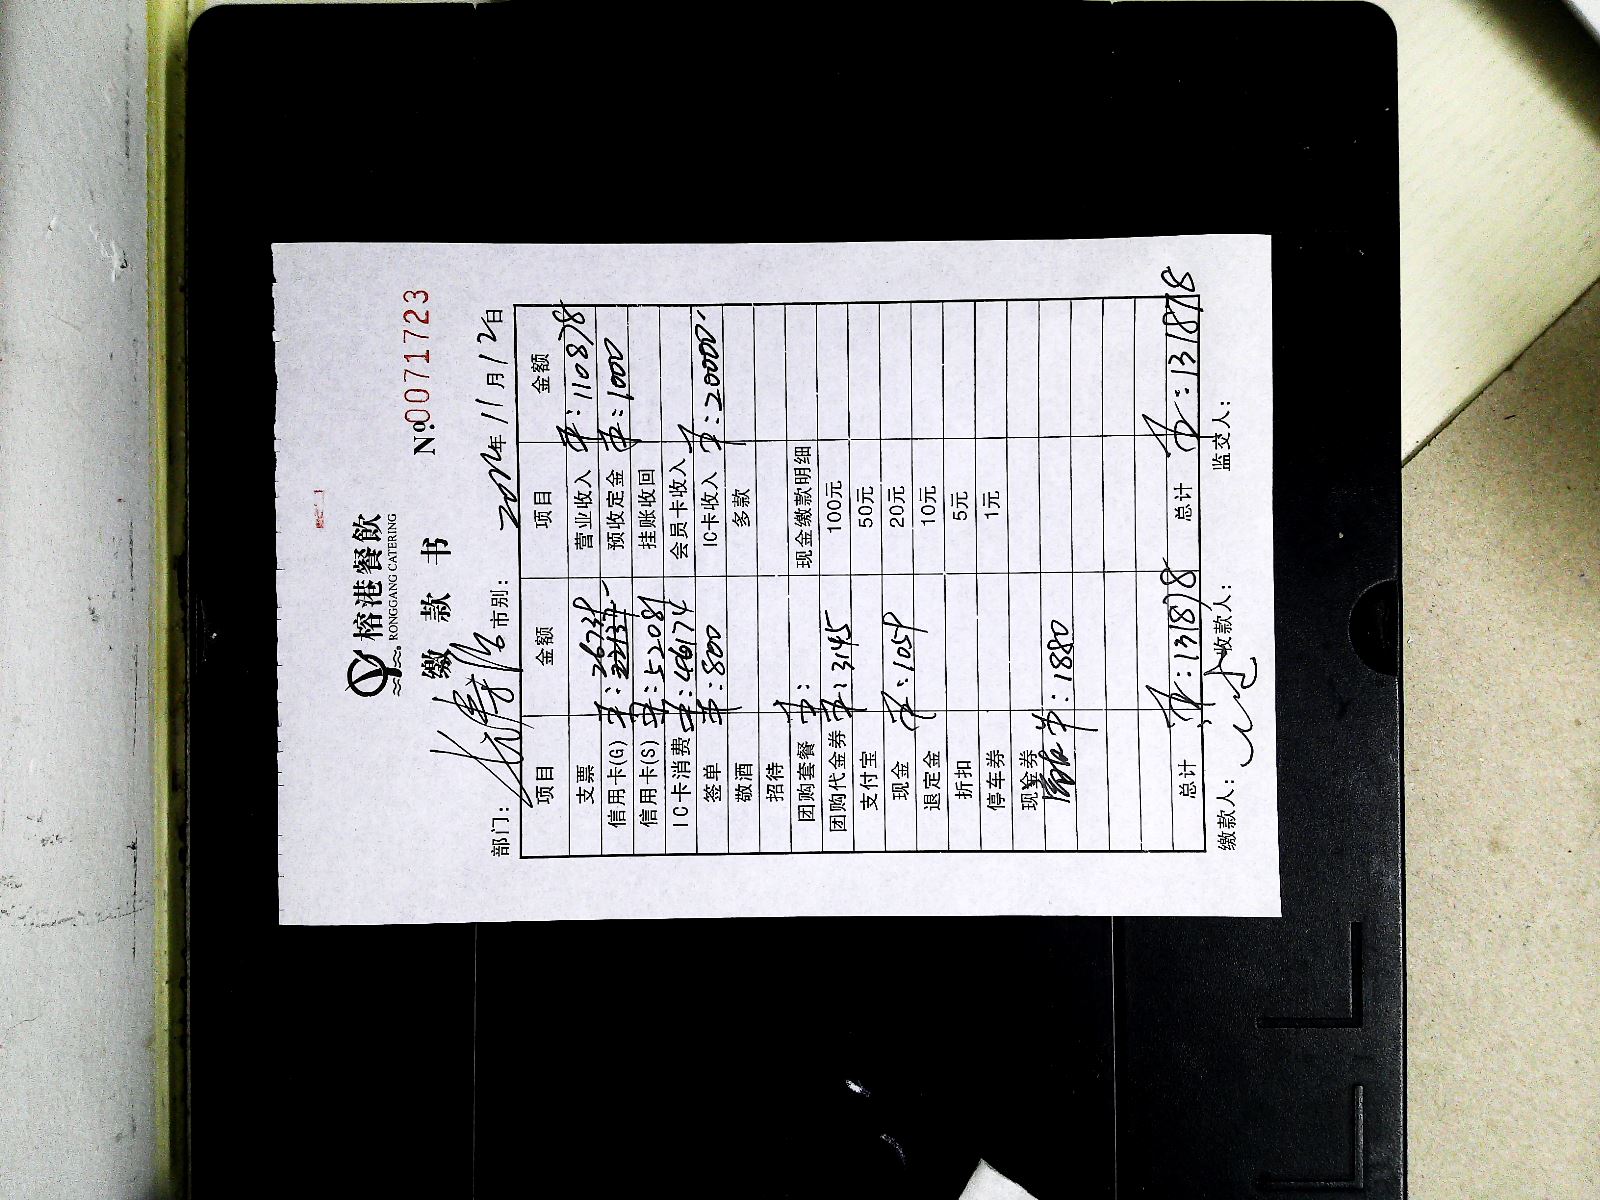 榕港餐飲
RONGGANG CATERING
缴 款 书
№0071723
部门： 市别： 年11月12日
项目 金额 项目 金额
支票 营业收入 ¥:110878
信用卡(G) 预收定金 ¥:1000
信用卡(S) ¥:52081 挂账收回
IC卡消费 ¥:46174 会员卡收入
签单 ¥:800 IC卡收入 ¥:20000
敬酒 多款
招待
团购套餐 ¥: 现金缴款明细
团购代金券 ¥:3145 100元
支付宝 50元
现金 ¥:1059 20元
退定金 10元
折扣 5元
停车券 1元
现金券
¥:1880
总计 ¥:131878 总计 ¥:131878
缴款人： 收款人： 监交人：